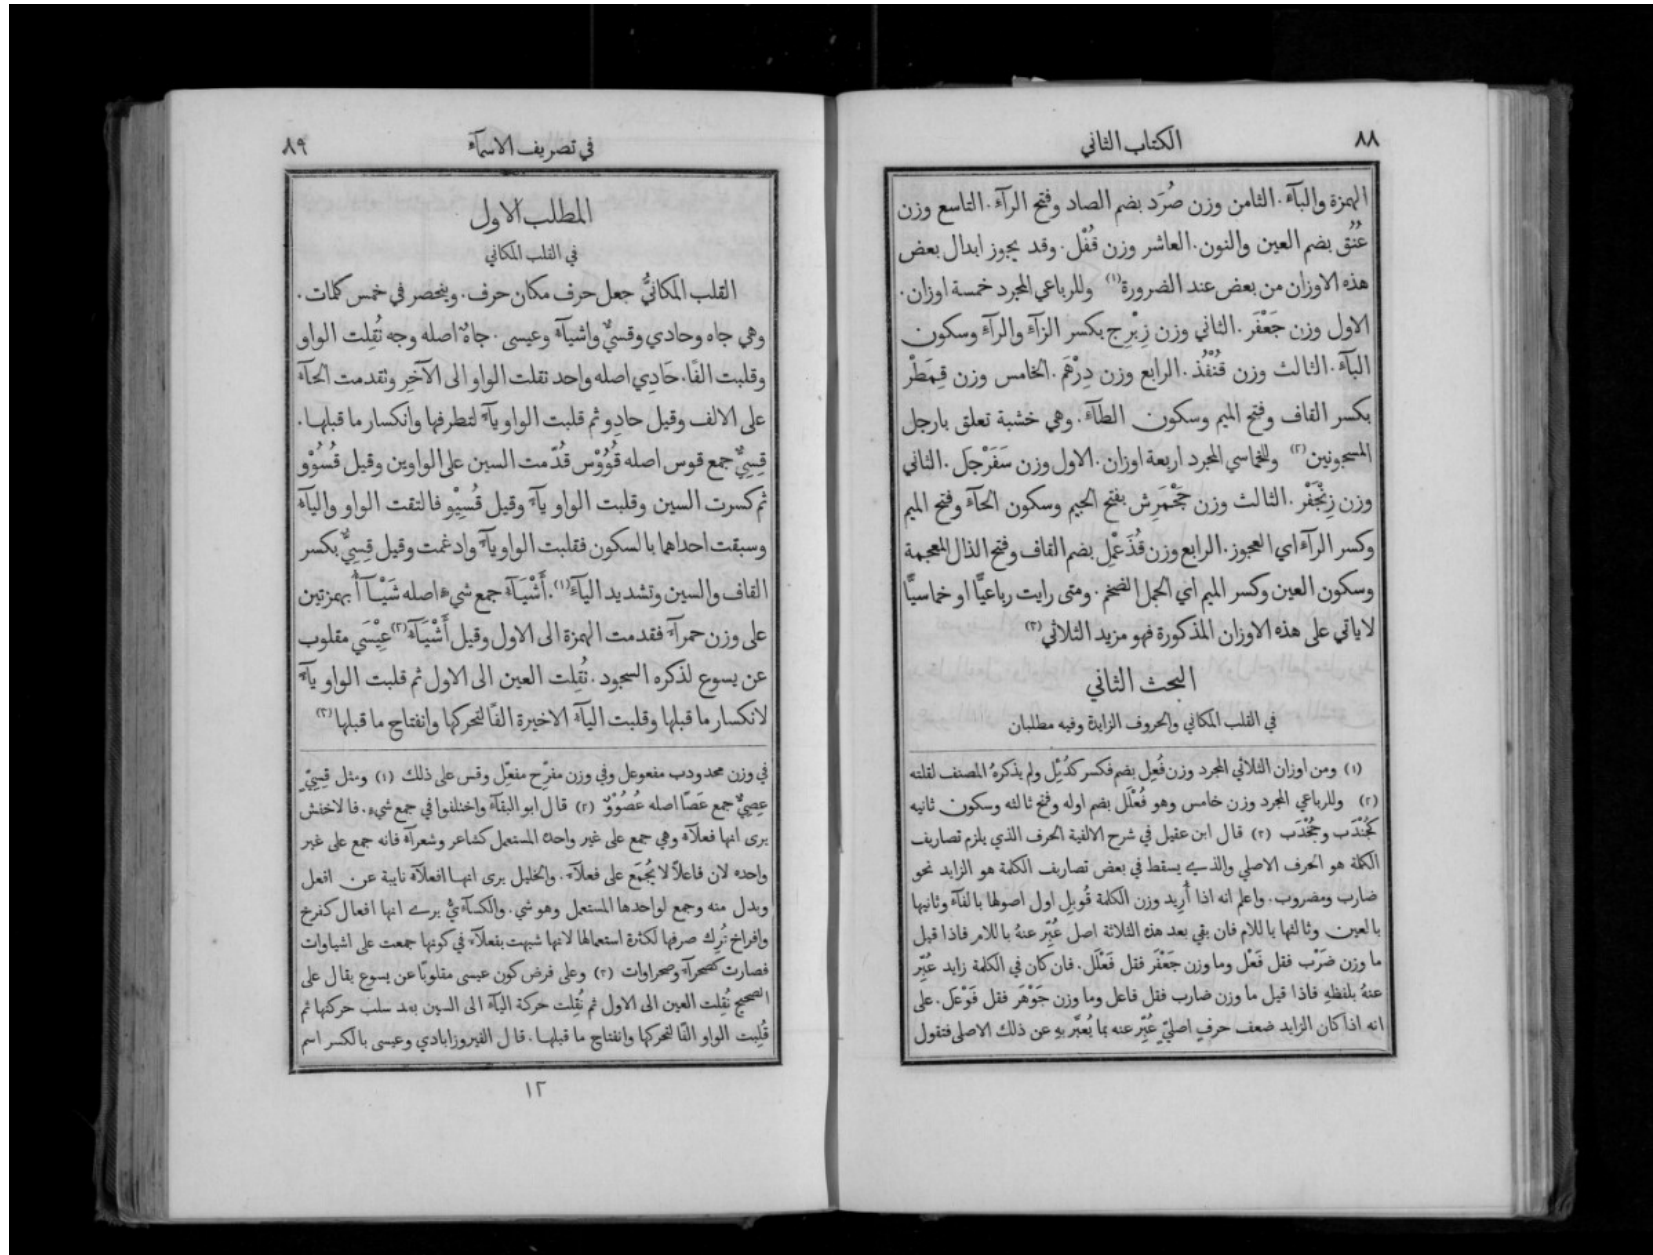 ٨٨
الكتاب الثاني
الهمزة والبآء. الثامن وزن صُرَد بضم الصاد وفتح الرآء. التاسع وزن
عُنُق بضم العين والنون. العاشر وزن قُفْل. وقد يجوز ابدال بعض
هذه الاوزان من بعض عند الضرورة (١) وللرباعي المجرد خمسة اوزان.
الاول وزن جَعْفَر. الثاني وزن زِبْرِج بكسر الزآء والرآء وسكون
البآء. الثالث وزن قُنْفُذ. الرابع وزن دِرْهَم. الخامس وزن قِمَطْر
بكسر القاف وفتح الميم وسكون الطآء. وهي خشبة تعلق بارجل
المسجونين (٢) وللخماسي المجرد اربعة اوزان. الاول وزن سَفَرْجَل. الثاني
وزن زِنْجَفْر. الثالث وزن جَحْمَرِش بفتح الجيم وسكون الحآء وفتح الميم
وكسر الرآء اي العجوز. الرابع وزن قُذَعْمِل بضم القاف وفتح الذال المعجمة
وسكون العين وكسر الميم اي الجمل الضخم. ومتى رايت رباعيًّا او خماسيًّا
لا ياتي على هذه الاوزان المذكورة فهو مزيد الثلاثي (٣)
البحث الثاني
في القلب المكاني والحروف الزايدة وفيه مطلبان
(١) ومن اوزان الثلاثي المجرد وزن فُعِل بضم فكسر كدُئِل ولم يذكرهُ المصنف لقلته
(٢) وللرباعي المجرد وزن خامس وهو فُعْلَل بضم اوله وفتح ثالثه وسكون ثانيه
كجُنْدَب وجُخْدَب (٣) قال ابن عقيل في شرح الالفية الحرف الذي يلزم تصاريف
الكلمة هو الحرف الاصلي والذي يسقط في بعض تصاريف الكلمة هو الزايد نحو
ضارب ومضروب. واعلم انه اذا أُرِيد وزن الكلمة قُوبل اول اصولها بالفآء وثانيها
بالعين وثالثها باللام فان بقي بعد هذه الثلاثة اصل عُبِّر عنهُ باللام فاذا قيل
ما وزن ضَرْب فقل فَعْل وما وزن جَعْفَر فقل فَعْلَل. فان كان في الكلمة زايد عُبِّر
عنهُ بلفظهِ فاذا قيل ما وزن ضارب فقل فاعل وما وزن جَوْهَر فقل فَوْعَل. على
انه اذا كان الزايد ضعف حرفٍ اصليٍّ عُبِّر عنه بما يُعبَّر به عن ذلك الاصلي فتقول
في تصريف الاسمآء
٨٩
المطلب الاول
في القلب المكاني
القلب المكانيُّ جعل حرف مكان حرف. وينحصر في خمس كلمات.
وهي جاه وحادي وقسيٌّ واشيآء وعيسى. جاهٌ اصله وجه نُقِلت الواو
وقلبت الفًا. حَادِي اصله واحد نقلت الواو الى الآخِر وتقدمت الحآء
على الالف وقيل حادِو ثم قلبت الواو يآء لتطرفها وانكسار ما قبلها.
قِسِيٌّ جمع قوس اصله قُوُوْس قُدّمت السين على الواوين وقيل قُسُوْو
ثم كسرت السين وقلبت الواو يآء وقيل قُسِيْو فالتقت الواو واليآء
وسبقت احداهما بالسكون فقلبت الواو يآء وادغمت وقيل قِسِيٌّ بكسر
القاف والسين وتشديد اليآء (١). أَشْيَآء جمع شيء اصله شَيْآأُ بهمزتين
على وزن حمرآء فقدمت الهمزة الى الاول وقيل أَشْيَآء (٢) عِيْسَى مقلوب
عن يسوع لذكره السجود. نُقِلت العين الى الاول ثم قلبت الواو يآء
لانكسار ما قبلها وقلبت اليآء الاخيرة الفًا لتحركها وانفتاح ما قبلها (٣)
في وزن محدودب مفعوعل وفي وزن مفرّح مفعّل وقس على ذلك (١) ومثل قِسِيّ
عِصِيٌّ جمع عَصًا اصله عُصُوْوٌ (٢) قال ابو البقآء واختلفوا في جمع شيء. فالاخفش
يرى انها فعلآء وهي جمع على غير واحدهِ المستعمل كشاعر وشعرآء فانه جمع على غير
واحده لان فاعلاً لا يُجمَع على فعلآء. والخليل يرى انها افعلآء نايبة عن افعل
وبدل منه وجمع لواحدها المستعمل وهو شي. والكسآءيُّ يرى انها افعال كفرخ
وافراخ تُرِك صرفها لكثرة استعمالها لانها شبهت بفعلآء في كونها جمعت على اشياوات
فصارت كصحرآء وصحراوات (٣) وعلى فرض كون عيسى مقلوبًا عن يسوع يقال على
الصحيح نُقِلت العين الى الاول ثم نُقِلت حركة اليآء الى السين بعد سلب حركتها ثم
قُلِبت الواو الفًا لتحركها وانفتاح ما قبلها. قال الفيروزابادي وعيسى بالكسر اسم
١٢